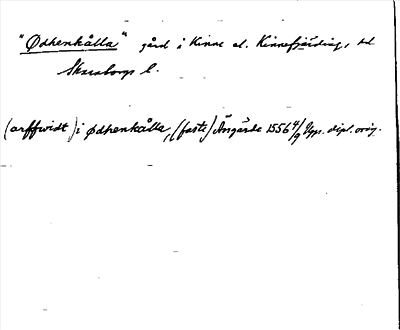 "Ødhenkålla" gård i Kinne el. Kinnefjärding, hd
Skaraborgs l.
(arffwidt) i ødhenkålla, (faste) Åsgärde 1556 4/9 Upps. dipl. orig.